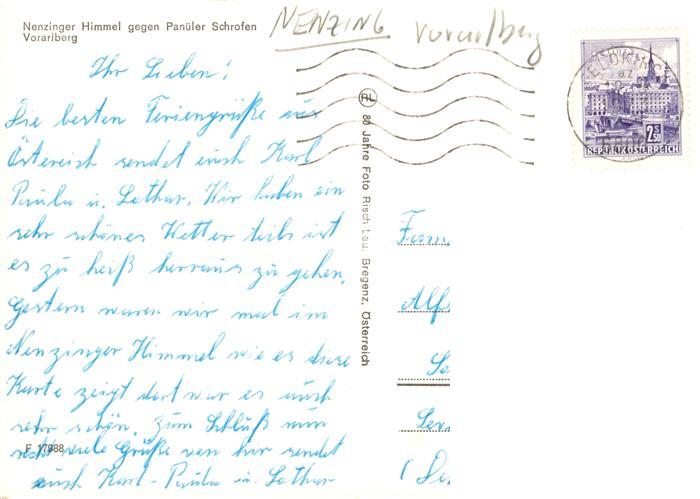 Nenzinger Himmel gegen Panüler Schrofen
Vorarlberg
NENZING Vorarlberg
Ihr Lieben!
Die besten Feriengrüße aus
Östereich sendet euch Karl
Paula u. Lothar. Wir haben ein
sehr schönes Wetter teils ist
es zu heiß herraus zu gehen.
Gestern waren wir mal im
Nenzinger Himmel wie es diese
Karte zeigt dort war es auch
sehr schön. Zum Schluß nun
recht viele Grüße von hir sendet
euch Karl-Paula u. Lothar
F 17988
RL 80 Jahre Foto Risch-Lau, Bregenz, Österreich
2.50
REPUBLIK ÖSTERREICH
Fam.
Alf